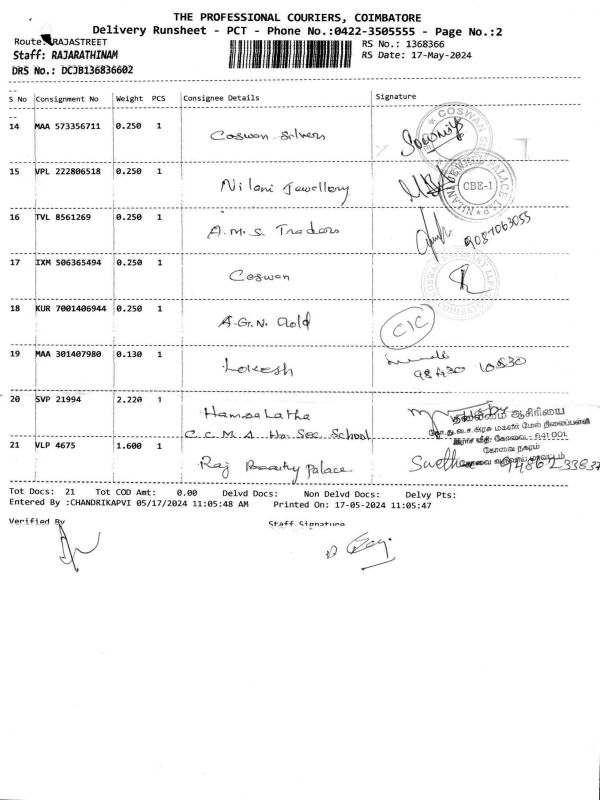 THE PROFESSIONAL COURIERS, COIMBATORE
Delivery Runsheet - PCT - Phone No.:0422-3505555 - Page No.:2
Route: RAJASTREET
RS No.: 1368366
Staff: RAJARATHINAM
RS Date: 17-May-2024
DRS No.: DCJB136836602
S No Consignment No Weight PCS Consignee Details Signature
14 MAA 573356711 0.250 1 Coswan Silvers
COSWAN S
15 VPL 222806518 0.250 1 Nilani Jewellery
CBE-1
16 TVL 8561269 0.250 1 A.M.S. Traders 9087063055
17 IXM 506365494 0.250 1 Coswan
COIMBATO
18 KUR 7001406944 0.250 1 A.G.N. Gold CIC
19 MAA 301407980 0.130 1 Lokesh
20 SVP 21994 2.220 1 Hamsalatha
C.C.M.A. Hr. Sec. School
தலைமை ஆசிரியை
அரசு மகளிர் மேல் நிலைப்பள்ளி
கோவை - 641 001.
கோவை நகரம்
21 VLP 4675 1.600 1 Raj Beauty Palace Swetha
Tot Docs: 21 Tot COD Amt: 0.00 Delvd Docs: Non Delvd Docs: Delvy Pts:
Entered By :CHANDRIKAPVI 05/17/2024 11:05:48 AM Printed On: 17-05-2024 11:05:47
Verified By Staff Signature